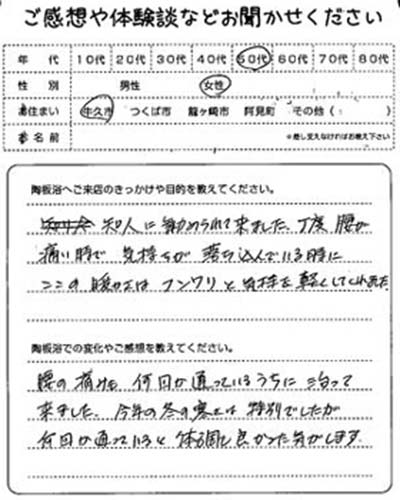 ご感想や体験談などお聞かせください
年代 10代 20代 30代 40代 50代 60代 70代 80代
性別 男性 女性
お住まい 牛久市 つくば市 龍ヶ崎市 阿見町 その他( )
お名前 ※差し支えなければお教え下さい
陶板浴へご来店のきっかけや目的を教えてください。
知人に勧められて来ました。丁度 腰が
痛い時で 気持ちが 落ち込んでいる時に
ここの 暖かさは フンワリと 気持を 軽くしてくれました
陶板浴での変化やご感想を教えてください。
腰の痛みも 何日か通っているうちに 治って
来ました。今年の冬の寒さは 特別でしたが
何日か通っていると 体調も良かった気がします。